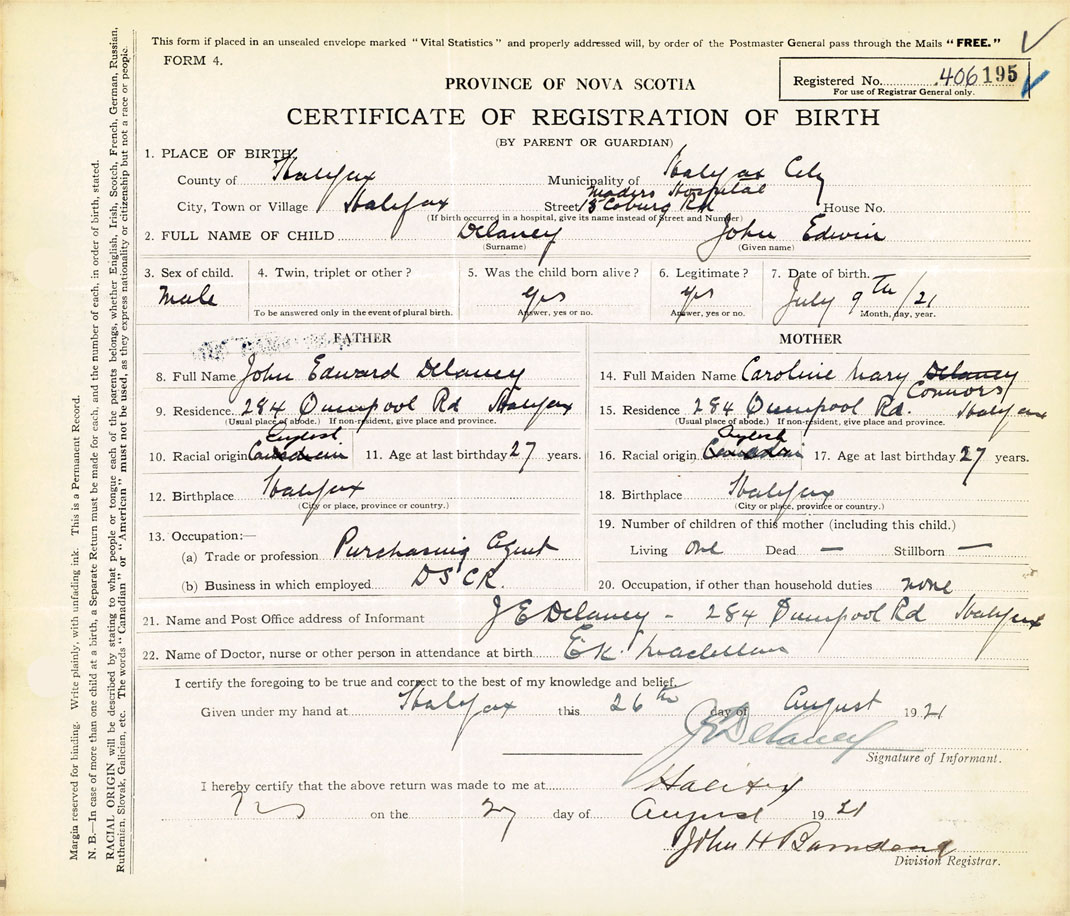 This form if placed in an unsealed envelope marked "Vital Statistics" and properly addressed will, by order of the Postmaster General pass through the Mails "FREE."
FORM 4.
Registered No. 406195
For use of Registrar General only.
PROVINCE OF NOVA SCOTIA
CERTIFICATE OF REGISTRATION OF BIRTH
(BY PARENT OR GUARDIAN)
1. PLACE OF BIRTH
County of Halifax Municipality of Halifax City
Maders Hospital
City, Town or Village Halifax Street 13 Coburg Rd House No.
(If birth occurred in a hospital, give its name instead of Street and Number)
2. FULL NAME OF CHILD Delaney John Edwin
(Surname) (Given name)
3. Sex of child. 4. Twin, triplet or other? 5. Was the child born alive? 6. Legitimate? 7. Date of birth.
Male yes yes July 9th/21
To be answered only in the event of plural birth. Answer, yes or no. Answer, yes or no. Month, day, year.
FATHER
8. Full Name John Edward Delaney
9. Residence 284 Quinpool Rd Halifax
(Usual place of abode.) If non-resident, give place and province.
English
10. Racial origin Canadian 11. Age at last birthday 27 years.
12. Birthplace Halifax
(City or place, province or country.)
13. Occupation:—
(a) Trade or profession Purchasing Agent
(b) Business in which employed DSCR.
MOTHER
14. Full Maiden Name Caroline Mary Delaney
Connors
15. Residence 284 Quinpool Rd. Halifax
(Usual place of abode.) If non-resident, give place and province.
English
16. Racial origin Canadian 17. Age at last birthday 27 years.
18. Birthplace Halifax
(City or place, province or country.)
19. Number of children of this mother (including this child.)
Living one Dead — Stillborn —
20. Occupation, if other than household duties none
21. Name and Post Office address of Informant J E Delaney - 284 Quinpool Rd Halifax
22. Name of Doctor, nurse or other person in attendance at birth E K Maclellan
I certify the foregoing to be true and correct to the best of my knowledge and belief.
Given under my hand at Halifax this 26th day of August 1921
J E Delaney
Signature of Informant.
I hereby certify that the above return was made to me at Halifax
on the 27 day of August 1921
John H
Division Registrar.
Margin reserved for binding. Write plainly, with unfading ink. This is a Permanent Record.
N. B.—In case of more than one child at a birth, a Separate Return must be made for each, and the number of each, in order of birth, stated.
RACIAL ORIGIN will be described by stating to what people or tongue each of the parents belongs, whether English, Irish, Scotch, French, German, Russian,
Ruthenian, Slovak, Galician, etc. The words "Canadian" or "American" must not be used, as they express nationality or citizenship but not a race or people.